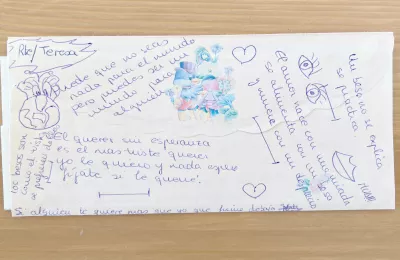 Rte/ Teresa
puede que no seas
nada para el mundo
pero puedes ser un
mundo para
alguien
El amor nace con una mirada
se alimenta con un beso
y muere con un
Un beso no se explica
se practica
los besos son
como el
se
querer sin esperanza
es el mas triste querer
yo te quiero y nada espero
fijate si te quiero!
Si alguien te quiere mas que yo que firme debajo